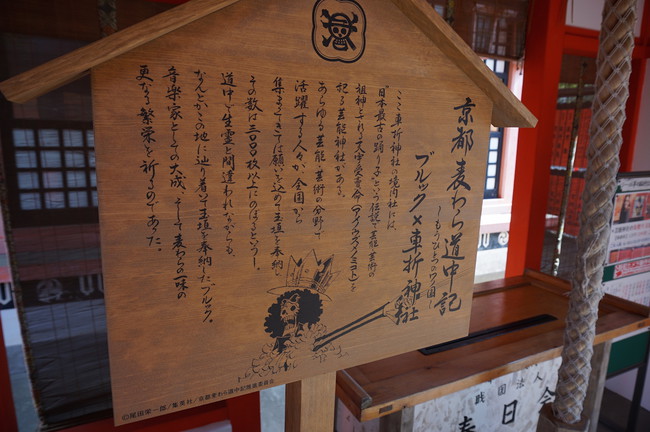 京都麦わら道中記
～もうひとつのワノ国～
ブルック×車折神社
ここ車折神社の境内社には、
"日本最古の踊り子"という伝説で芸能、芸術の
祖神とされる天宇受売命(アメノウズメノミコト)を
祀る芸能神社がある。
あらゆる芸能、芸術の分野で
活躍する人々が、全国から
集まってきては願いを込めて玉垣を奉納。
その数は三〇〇〇枚以上にのぼるという！。
道中で生霊と間違われながらも、
なんとかこの地に辿り着いて玉垣を奉納したブルック。
音楽家としての大成、そして麦わらの一味の
更なる繁栄を祈るのであった。
©尾田栄一郎/集英社/京都麦わら道中記製作委員会